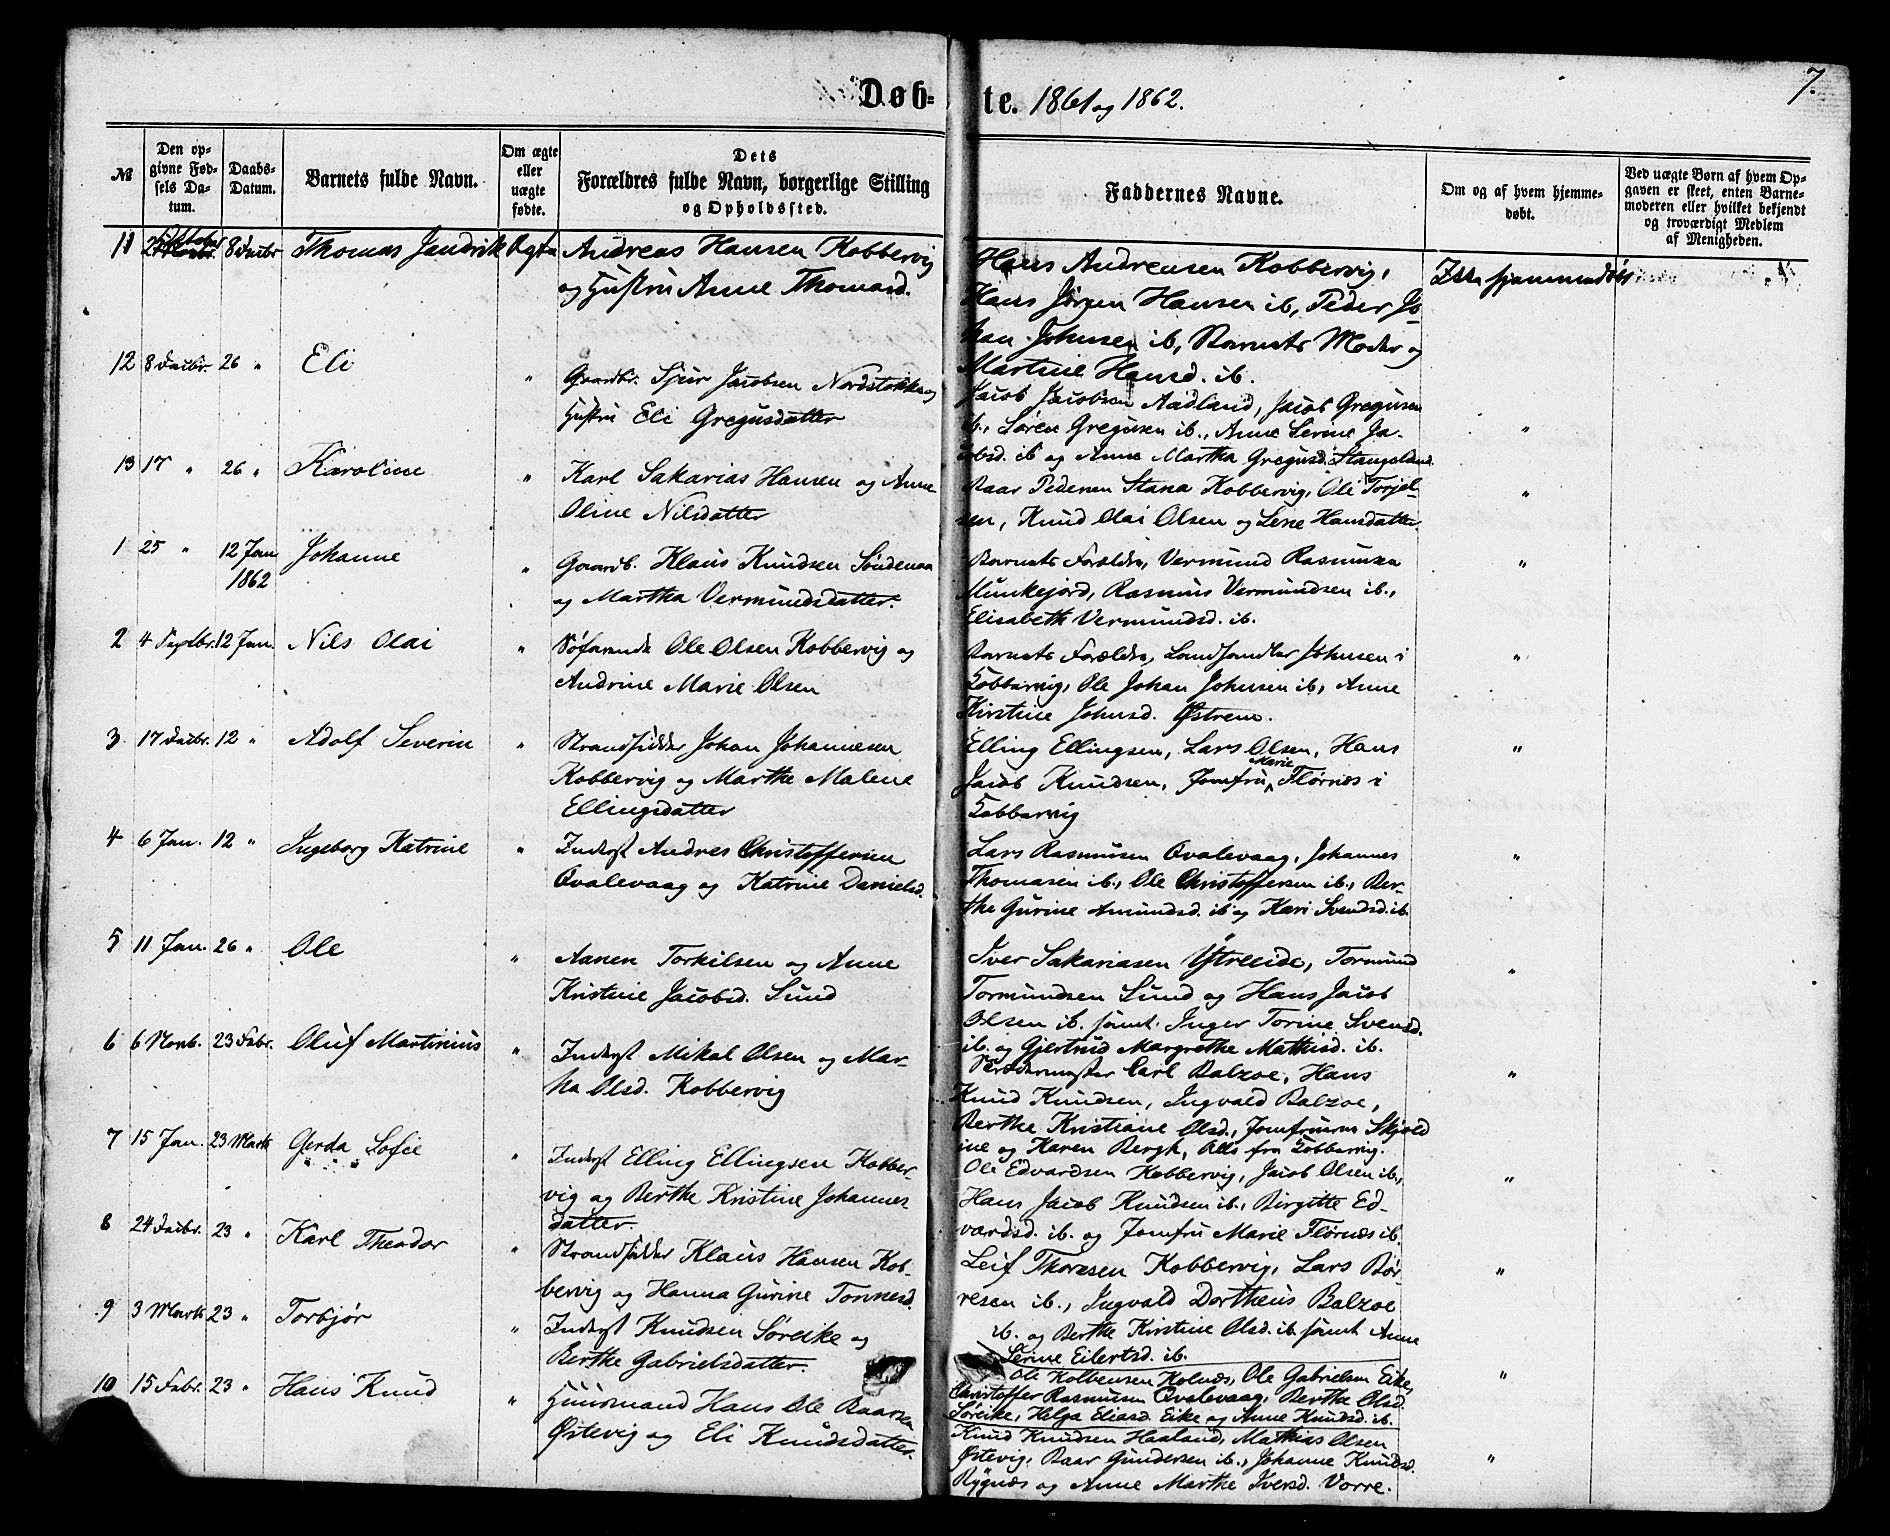 Døb-
te. 1861 og 1862.
7.
№
Den op-
givne Fød-
sels Da-
tum.
Daabs-
Datum.
Barnets fulde Navn.
Om ægte
eller
uægte
fødte.
Dets
Forældres fulde Navn, borgerlige Stilling
og Opholdssted.
Faddernes Navne.
Om og af hvem hjemme-
døbt.
Ved uægte Børn af hvem Op-
gaven er skeet, enten Barne-
moderen eller hvilket bekjendt
og troværdigt Medlem
af Menigheden.
11 8 Decbr Thomas Hendrik Ægte
Andreas Hansen Kobbervig
og Hustru Anne Thomasd.
Hans Andreasen Kobbervig,
Hans Jørgen Hansen ib, Peder Jo-
han Johnsen ib, Barnets Moder og
Martine Hansd. ib.
Ikke hjemmedøbt
12 8 Decbr. 26 " Eli "
Gaardbr. Sjur Jacobsen Nordstokke og
Hustru Eli Gregusdatter
Jacob Jacobsen Aadland, Jacob Gregusen
ib., Søren Gregusen ib., Anne Serine Ja-
cobsd. ib og Anne Martha Gregusd. Stangeland.
"
13 17 " 26 " Karoline "
Karl Sakarias Hansen og Anne
Oline Nilsdatter
Baar Pedersen Stana Kobbervig, Ole Torjel-
sen, Knud Olai Olsen og Lene Hansdatter.
"
1 25 " 12 Jan 1862 Johanne "
Gaardb. Klaus Knudsen Søndenaa
og Martha Vermundsdatter.
Barnets Forældre, Vermund Rasmusen
Munkejord, Rasmus Vermundsen ib.,
Elisabeth Vermundsd. ib.
"
2 4 Septbr. 12 Jan. Nils Olai "
Søfarende Ole Olsen Kobbervig og
Andrine Marie Olsen
Barnets Forældre, Landhandler Johnsen i
Kobbervig, Ole Johan Johnsen ib., Anne
Kirstine Johnsd. Østrem.
"
3 17 Decbr. 12 " Adolf Severin "
Strandsidder Johan Johannesen
Kobbervig og Marthe Malene
Ellingsdatter
Elling Ellingsen, Lars Olsen, Hans
Jacob Knudsen, Jomfru Marie Flørnæs i
Kobbervig
"
4 6 Jan. 12 " Ingeborg Katrine "
Inderst Andres Christoffersen
Qvalevaag og Katrine Danielsd.
Lars Rasmusen Qvalevaag, Johannes
Thomasen ib., Ole Christoffersen ib., Ber-
the Gurine Amundsd. ib og Kari Svendsd. ib.
"
5 11 Jan. 26 " Ole "
Aanen Torkilsen og Anne
Kristine Jacobsd. Sund
Iver Sakariasen Ytreeide, Tormund
Tormundsen Sund og Hans Jacob
Olsen ib. samt Inger Torine Svensd.
ib. og Gjertrud Margrethe Mathisd. ib.
"
6 6 Novb. 23 Febr. Oluf Martinius "
Inderst Mikal Olsen og Mar-
ha Olsd. Kobbervig
Carl Balzoe, Hans
Knud Knudsen, Ingvald Balzoe,
Berthe Kristiane Olsd., Jomfruerne Skjold
ine og Karen Bergh, Alle fra Kobbervig.
"
7 15 Jan. 23 Marts Gerda Sofie "
Inderst Elling Ellingsen Kobber-
vig og Berthe Kristine Johannes-
datter.
Ole Edvardsen Kobbervig, Jacob Olsen ib.,
Hans Jacob Knudsen ib., Birgitte Ed-
vardsd. ib. og Jomfru Marie Flørnæs ib.
"
8 24 Decbr. 23 " Karl Theodor "
Strandsidder Klaus Hansen Kob-
bervig og Hanna Gurine Tonnesd.
Leif Thoresen Kobbervig, Lars Bør-
resen ib., Ingvald Dortheus Balzoe
ib. og Berthe Kirstine Olsd. ib. samt Anne
Serine Eilertsd. ib.
"
9 3 Marts 23 " Torbjør "
Inderst Knudsen Søreike og
Berthe Gabrielsdatter.
Ole Kolbensen Kolnæs, Ole Gabrielsen Eike,
Christoffer Rasmusen Qvalevaag, Berthe Olsd.
Søreike, Helga Eliasd. Eike og Anne Knudsd. ib.
"
10 15 Febr. 23 " Hans Knud "
Huusmand Hans Ole Baarsen
Østevig og Eli Knudsdatter.
Knud Knudsen Haaland, Mathias Olsen
Østevig, Baar Gundersen ib., Johanne Knudsd.
Rygnæs og Anne Marthe Iversd. Vorre.
"